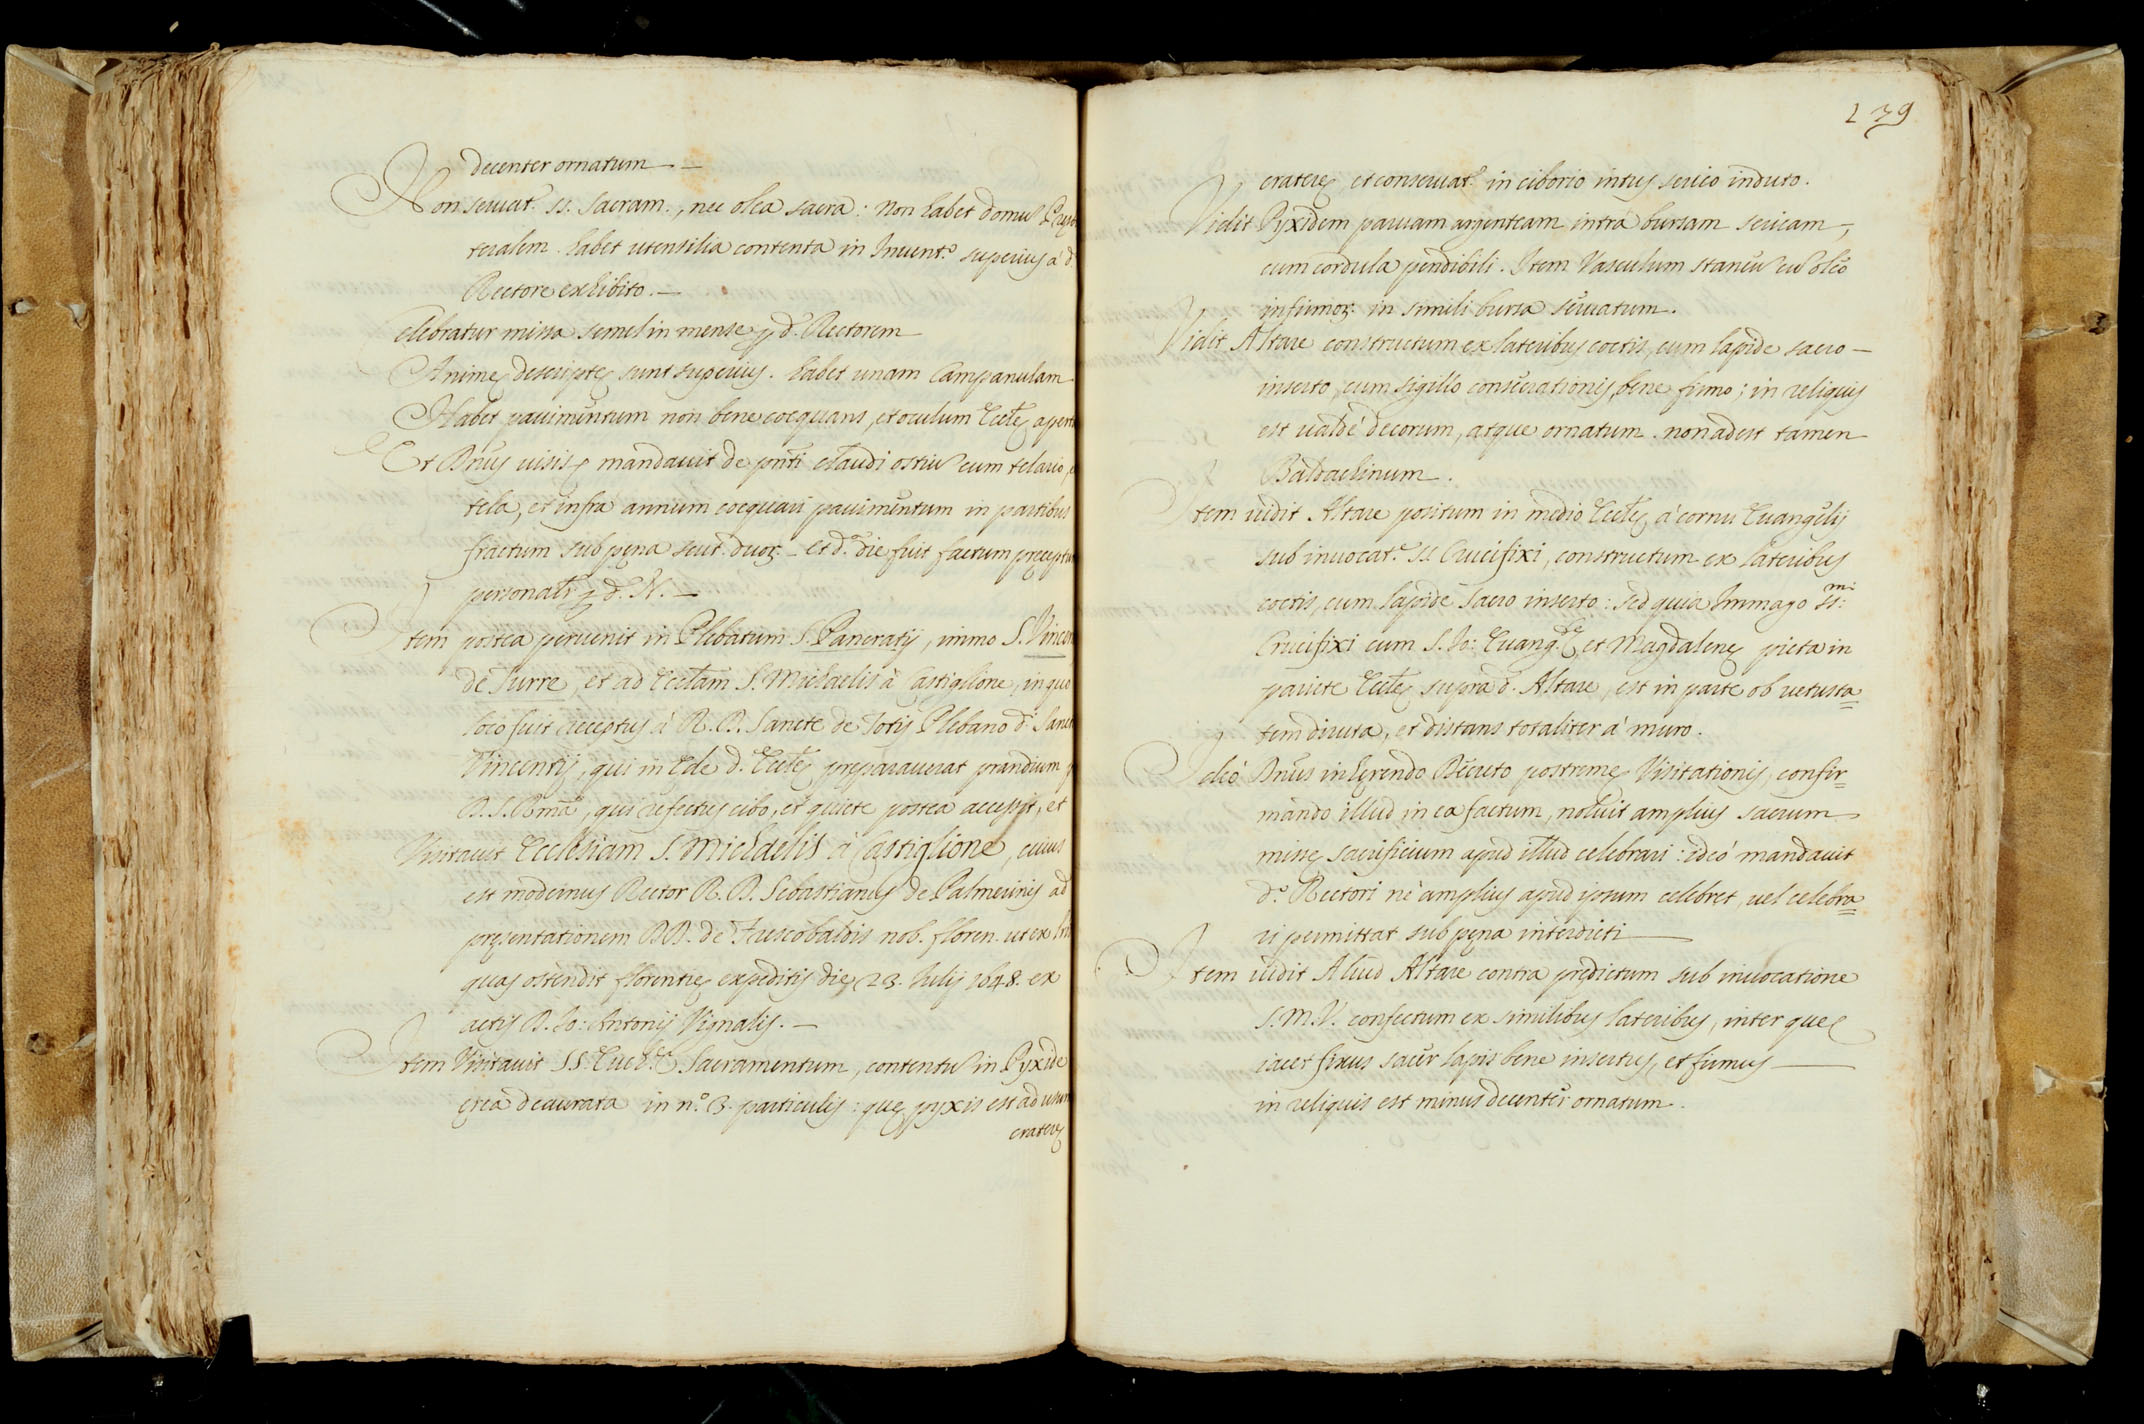 decenter ornatum —
Non servat. SS. Sacram., nec olea sacra: non habet domu
teralem. habet utensilia contenta in Invent.º superius à d.
Rectore exhibito. —
Celebratur missa semel in mense p d. Rectorem
Animę descriptę sunt superius. habet unam Campanulam
Habet pavimentum non bene coequans, et oculum Eccłę apert
Et Dn̄us visis mandavit de pn̄ti claudi ostiū cum telario,
tela, et infra annum coequari pavimentum in partibus
fractum sub pęna scut. duoꝝ. — et d.º die fuit factum pręceptu
personalr p d. N. —
Item postea pervenit in Plebatum S. Pancratij, immo S. Vincen
de Turre, et ad Eccłam S. Michaelis à Castiglione, in quo
loco fuit acceptus à R. D. Sancte de Totis Plebano d.i Sanct
Vincentij, qui in Ede d. Eccłę pręparaverat prandium p
D. S. Rmā, qui refectus cibo, et quiete postea accessit, et
Visitavit Ecclesiam S. Michaelis à Castiglione, cuius
est modernus Rector R. D. Sebastianus de Palmerinis ad
pręsentationem DD. de Frescobaldis nob. floren. ut ex
quas ostendit florentię expeditis die 23. Julij 1648. ex
actis D. Jo: Antonij Vignalis. —
Item Visitavit SS. Euch.ę Sacramentum, contentū in Pyxide
ęrea deaurata in n.º 3. particulis: quę pyxis est ad usum
crateris
239
crateris, et conservat.r in ciborio intus serico induto.
Vidit Pyxidem parvam argenteam intra bursam sericam —,
cum cordula pendibili. Item Vasculum staneū cū oleo
infirmoꝝ. in simili bursa servatum.
Vidit Altare constructum ex lateribus coctis, cum lapide sacro —
inserto, cum sigillo consecrationis, bene firmo; in reliquis
est valdè decorum, atque ornatum. non adest tamen
Baldachinum.
Item vidit Altare positum in medio Eccłę, à cornu Evangelij
sub invocat.e SS. Crucifixi, constructum ex lateribus
coctis, cum lapide sacro inserto: sed quia Immago SS:mi
Crucifixi cum S. Jo: Evang.ę et Magdalenę picta in
pariete Eccłę supra d. Altare, est in parte ob vetusta=
tem diruta, et distans totaliter à muro.
Ideò Dn̄us inhęrendo Decreto postremę Visitationis, confir=
mando illud in ea factum, noluit amplius sacrum
missę sacrificium apud illud celebrari: ideò mandavit
d.º Rectori nè amplius apud ipsum celebret, vel celebra=
ri permittat sub pęna interdicti —
Item vidit Aliud Altare contra prędictum sub invocatione
S. M. V. confectum ex similibus lateribus, inter quę
iacet fixus sacer lapis bene insertus, et firmus —
in reliquis est minus decenter ornatum.